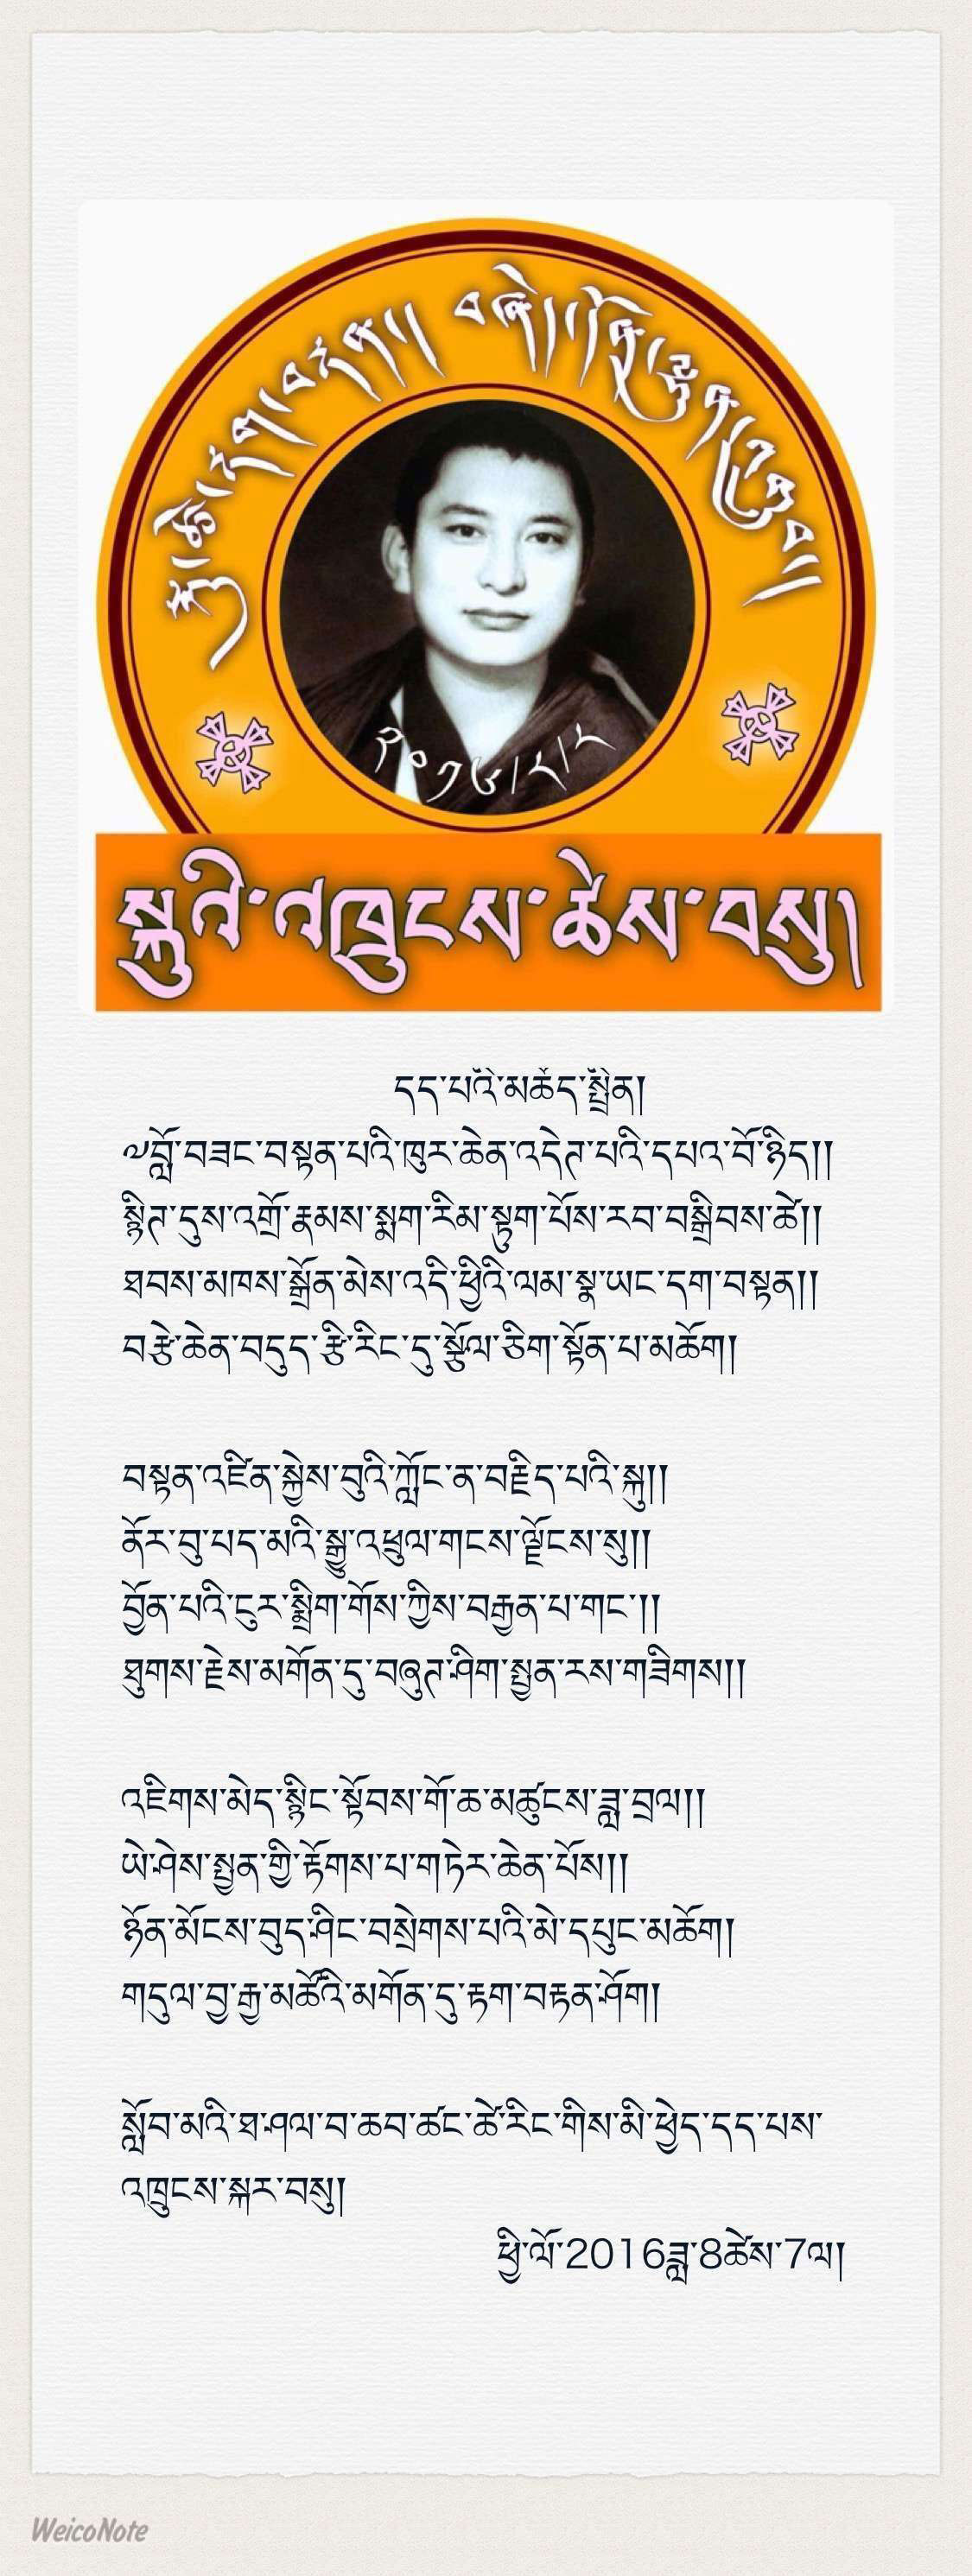 སྐུའི་འཁྲུངས་ཆེས་བསུ།
དད་པའི་མཆོད་སྤྲིན།
༧བློ་བཟང་བསྟན་པའི་ཁུར་ཆེན་འདེཊ་པའི་དཔའ་བོ་ཉིད།།
སྙིཊ་དུས་འགྲོ་རྣམས་སྨག་རིམ་སྟུག་པོས་རབ་བསྒྲིབས་ཚེ།།
ཐབས་མཁས་སྒྲོན་མེས་འདི་ཕྱིའི་ལམ་སྣ་ཡང་དག་བསྟན།།
བརྩེ་ཆེན་བདུད་རྩི་རིང་དུ་སྩོལ་ཅིག་སྟོན་པ་མཆོག།
བསྟན་འཛིན་སྐྱེས་བུའི་ཀློང་ན་བརྗིད་པའི་སྐུ།།
ནོར་བུ་པད་མའི་སྒྱུ་འཕྲུལ་གངས་ལྗོངས་སུ།།
བྱོན་པའི་ངུར་སྨྲིག་གོས་ཀྱིས་བརྒྱན་པ་གང་།།
ཐུགས་རྗེས་མགོན་དུ་བཞུཊ་ཤིག་སྤྱན་རས་གཟིགས།།
འཇིགས་མེད་སྙིང་སྟོབས་གོ་ཆ་མཚུངས་ཟླ་བྲལ།།
ཡེ་ཤེས་སྤྱན་གྱི་རྟོགས་པ་གཏེར་ཆེན་པོས།།
ཉོན་མོངས་བུད་ཤིང་བསྲེགས་པའི་མེ་དཔུང་མཆོག།
གདུལ་བྱ་རྒྱ་མཚོའི་མགོན་དུ་རྟག་བརྟན་ཤོག།
སློབ་མའི་ཐ་ཤལ་བ་ཆབ་ཚང་ཚེ་རིང་གིས་མི་ཕྱེད་དད་པས་
འཁྲུངས་སྐར་བསུ།
ཕྱི་ལོ་2016ཟླ་8ཚེས་7ལ།
WeicoNote